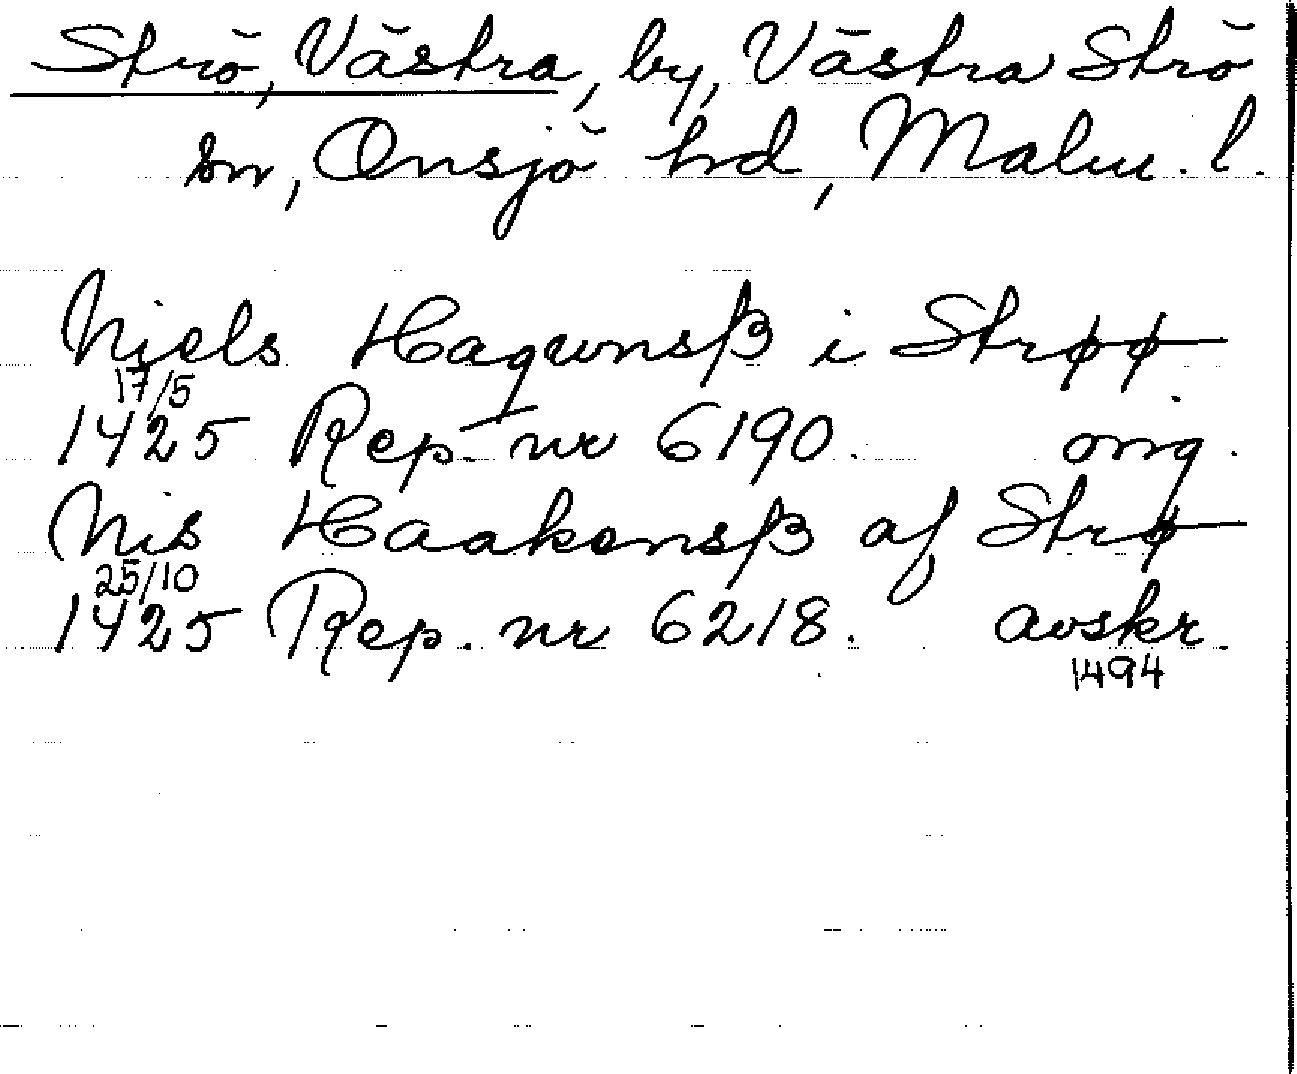 Strö, Västra, by, Västra Strö
sn, Onsjö hd, Malm. l.
Njels Haqwnsβ i Strøø
17/5
1425 Rep. nr 6190. orig.
Nis Haakonsβ af Strø
25/10
1425 Rep. nr 6218. avskr.
1494